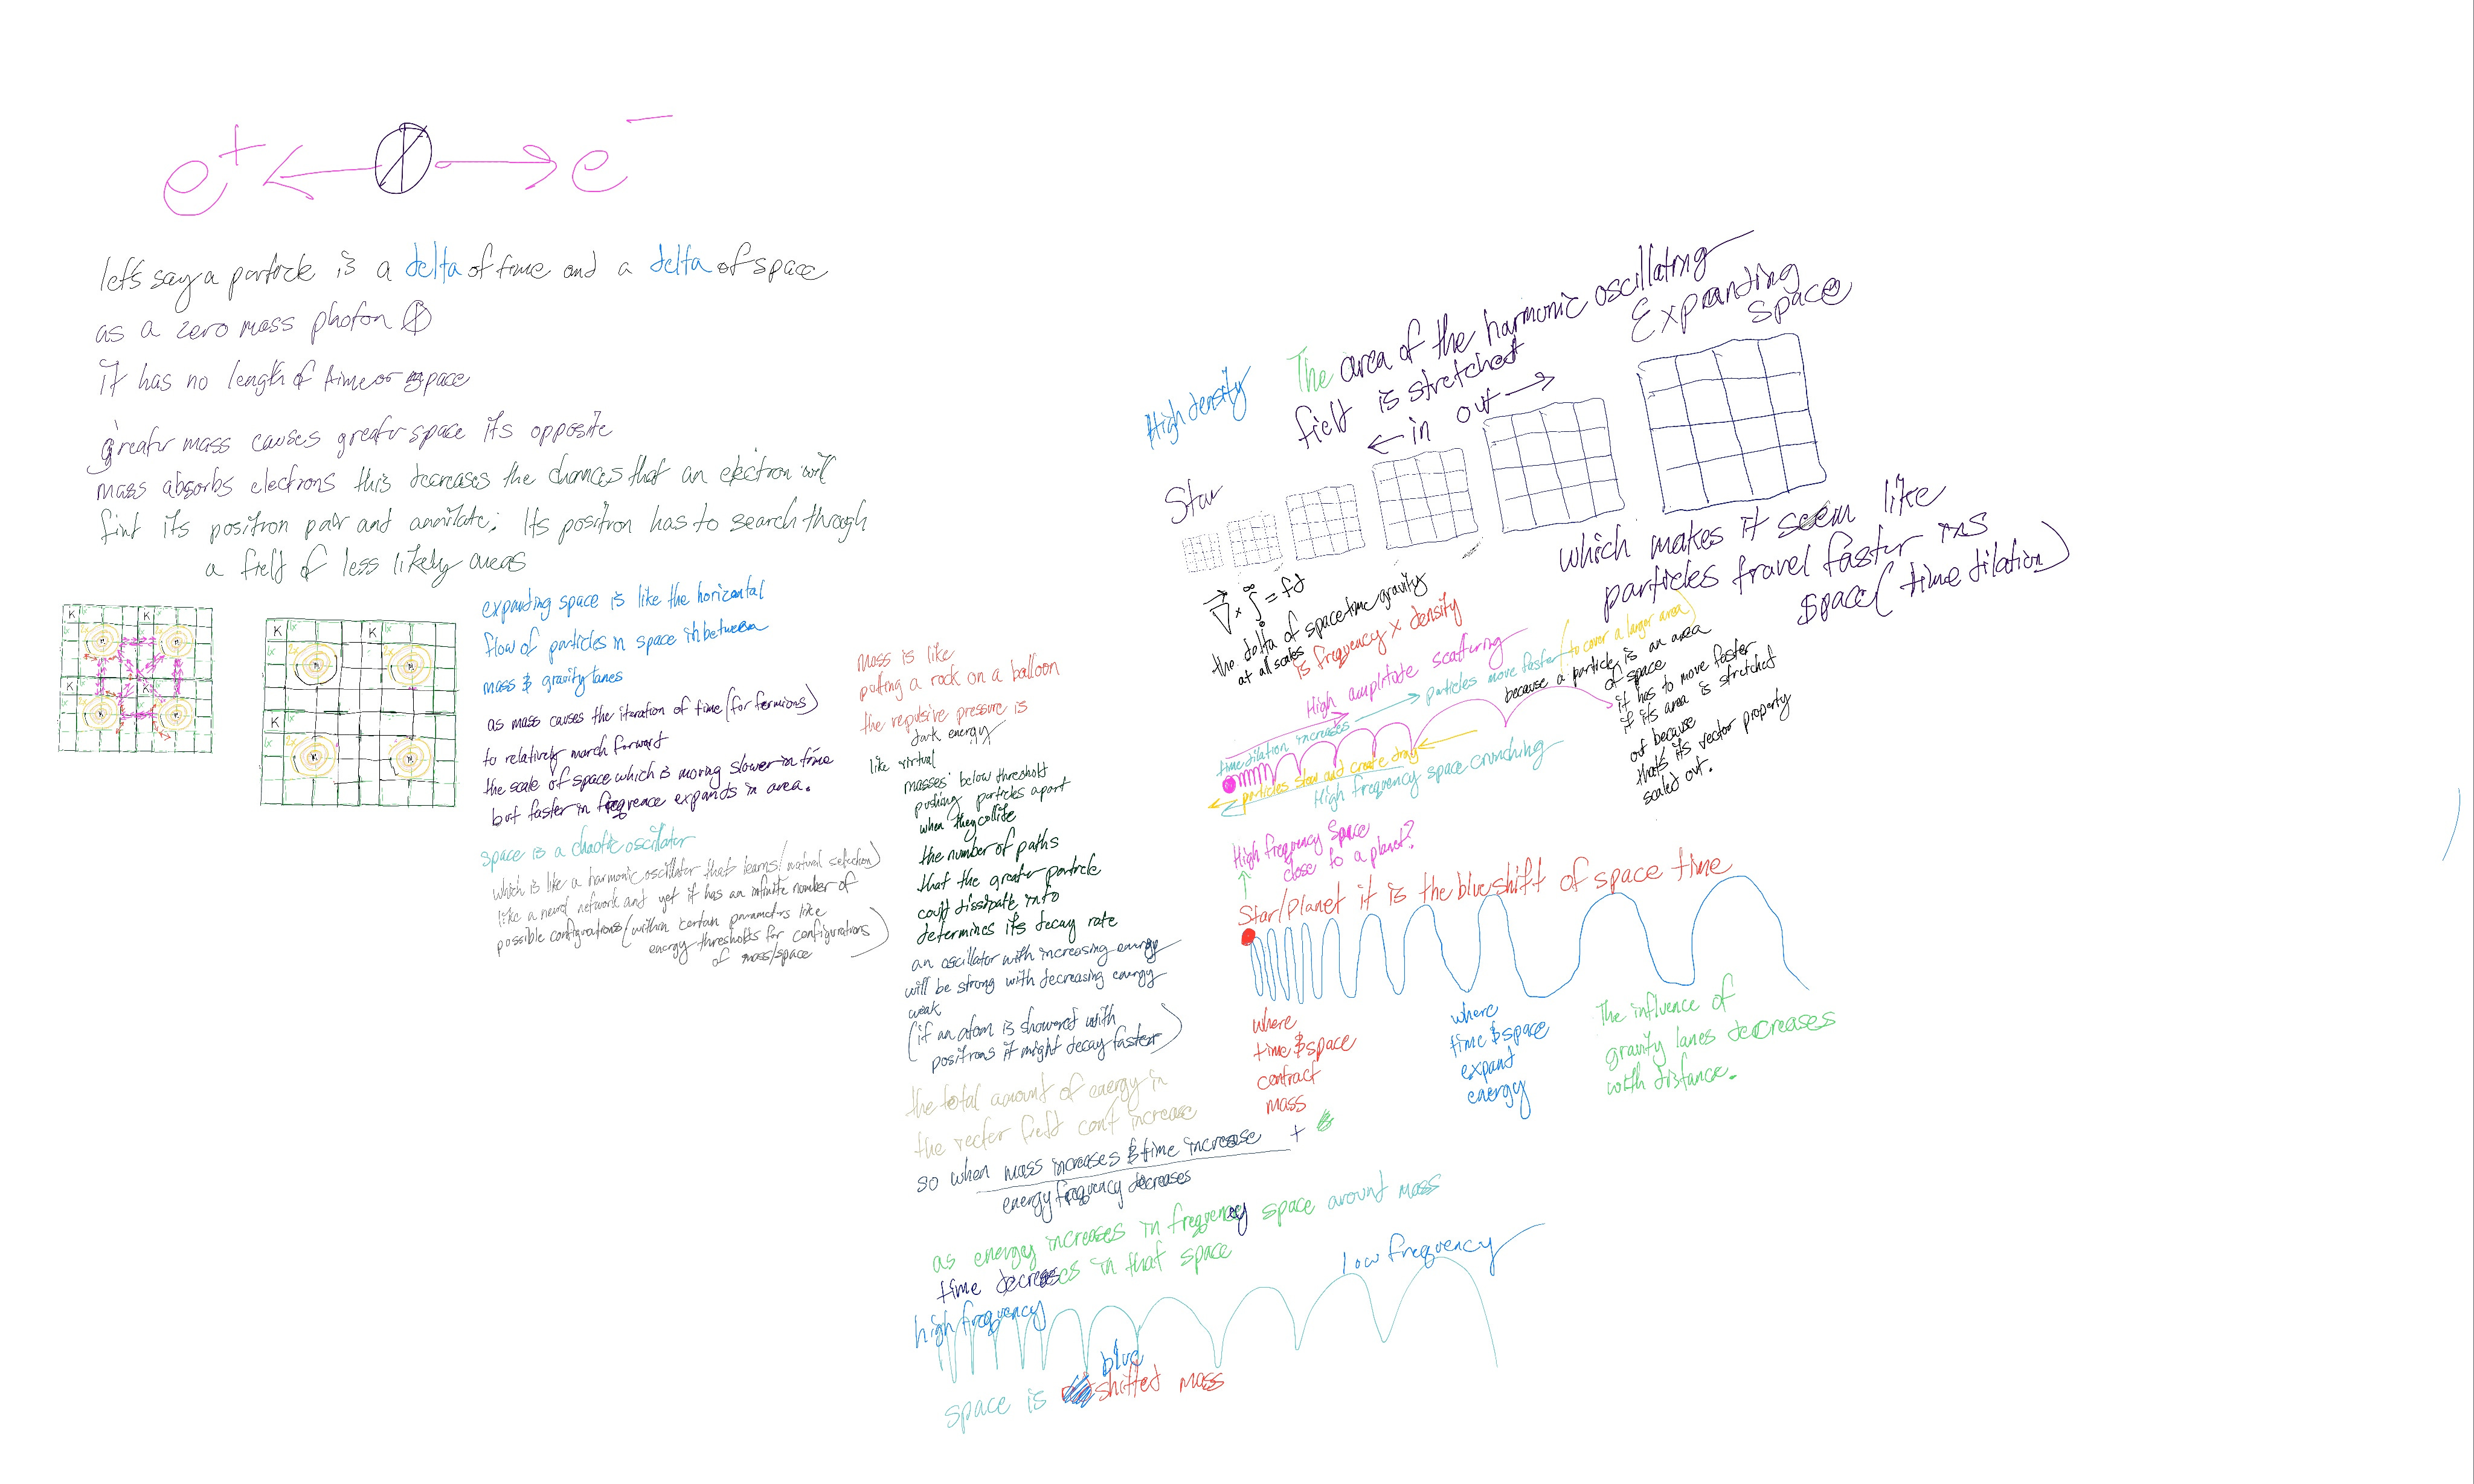 e+ e-
let's say a particle is a delta of time and a delta of space
as a zero mass photon
it has no length of time or space
greater mass causes greater space its opposite
mass absorbs electrons this decreases the chances that an electron will
find its positron pair and annilate; Its positron has to search through
a field of less likely areas
K K
K K
K K
K
expanding space is like the horizontal
flow of particles in space in between
mass & gravity lanes
as mass causes the iteration of time (for fermions)
to relatively march forward
the scale of space which is moving slower in time
but faster in freqreace expands in area.
space is a chaotic oscillator
which is like a harmonic oscillator that learns/natural selection)
like a neural network and yet it has an infinite number of
possible configurations (within certain parameters like
energy thresholds for configurations
of mass/space
mass is like
putting a rock on a balloon
the repulsive pressure is
dark energy
like virtual
masses below threshold
pushing particles apart
when they collide
the number of paths
that the greater particle
could dissipate into
determines its decay rate
an oscillator with increasing energy
will be strong with decreasing energy
weak
(if an atom is showered with
positrons it might decay faster)
the total amount of energy in
the vector field can't increase
so when mass increases & time increase +
energy frequency decreases
as energy increases in frequency space around mass
time decreases in that space
high frequency
low frequency
blue
space is shifted mass
High density
The area of the harmonic oscillating
field is stretched
← in out →
Expanding
space
Star
which makes it seem like
particles travel faster ins
space (time dilation)
∇ × ∫ = fd
the delta of space time gravity
at all scales
is frequency x density
High amplitude scattering
time dilation increases
particles move faster (to cover a larger area)
because a particle is an area
of space
it has to move faster
if its area is stretched
out because
that's its vector property
scaled out.
particles slow and create drag
High frequency space crunching
High frequency Space
close to a planet?
Star/Planet it is the blueshift of space time
where
time & space
contract
mass
where
time & space
expand
energy
The influence of
gravity lanes decreases
with distance.